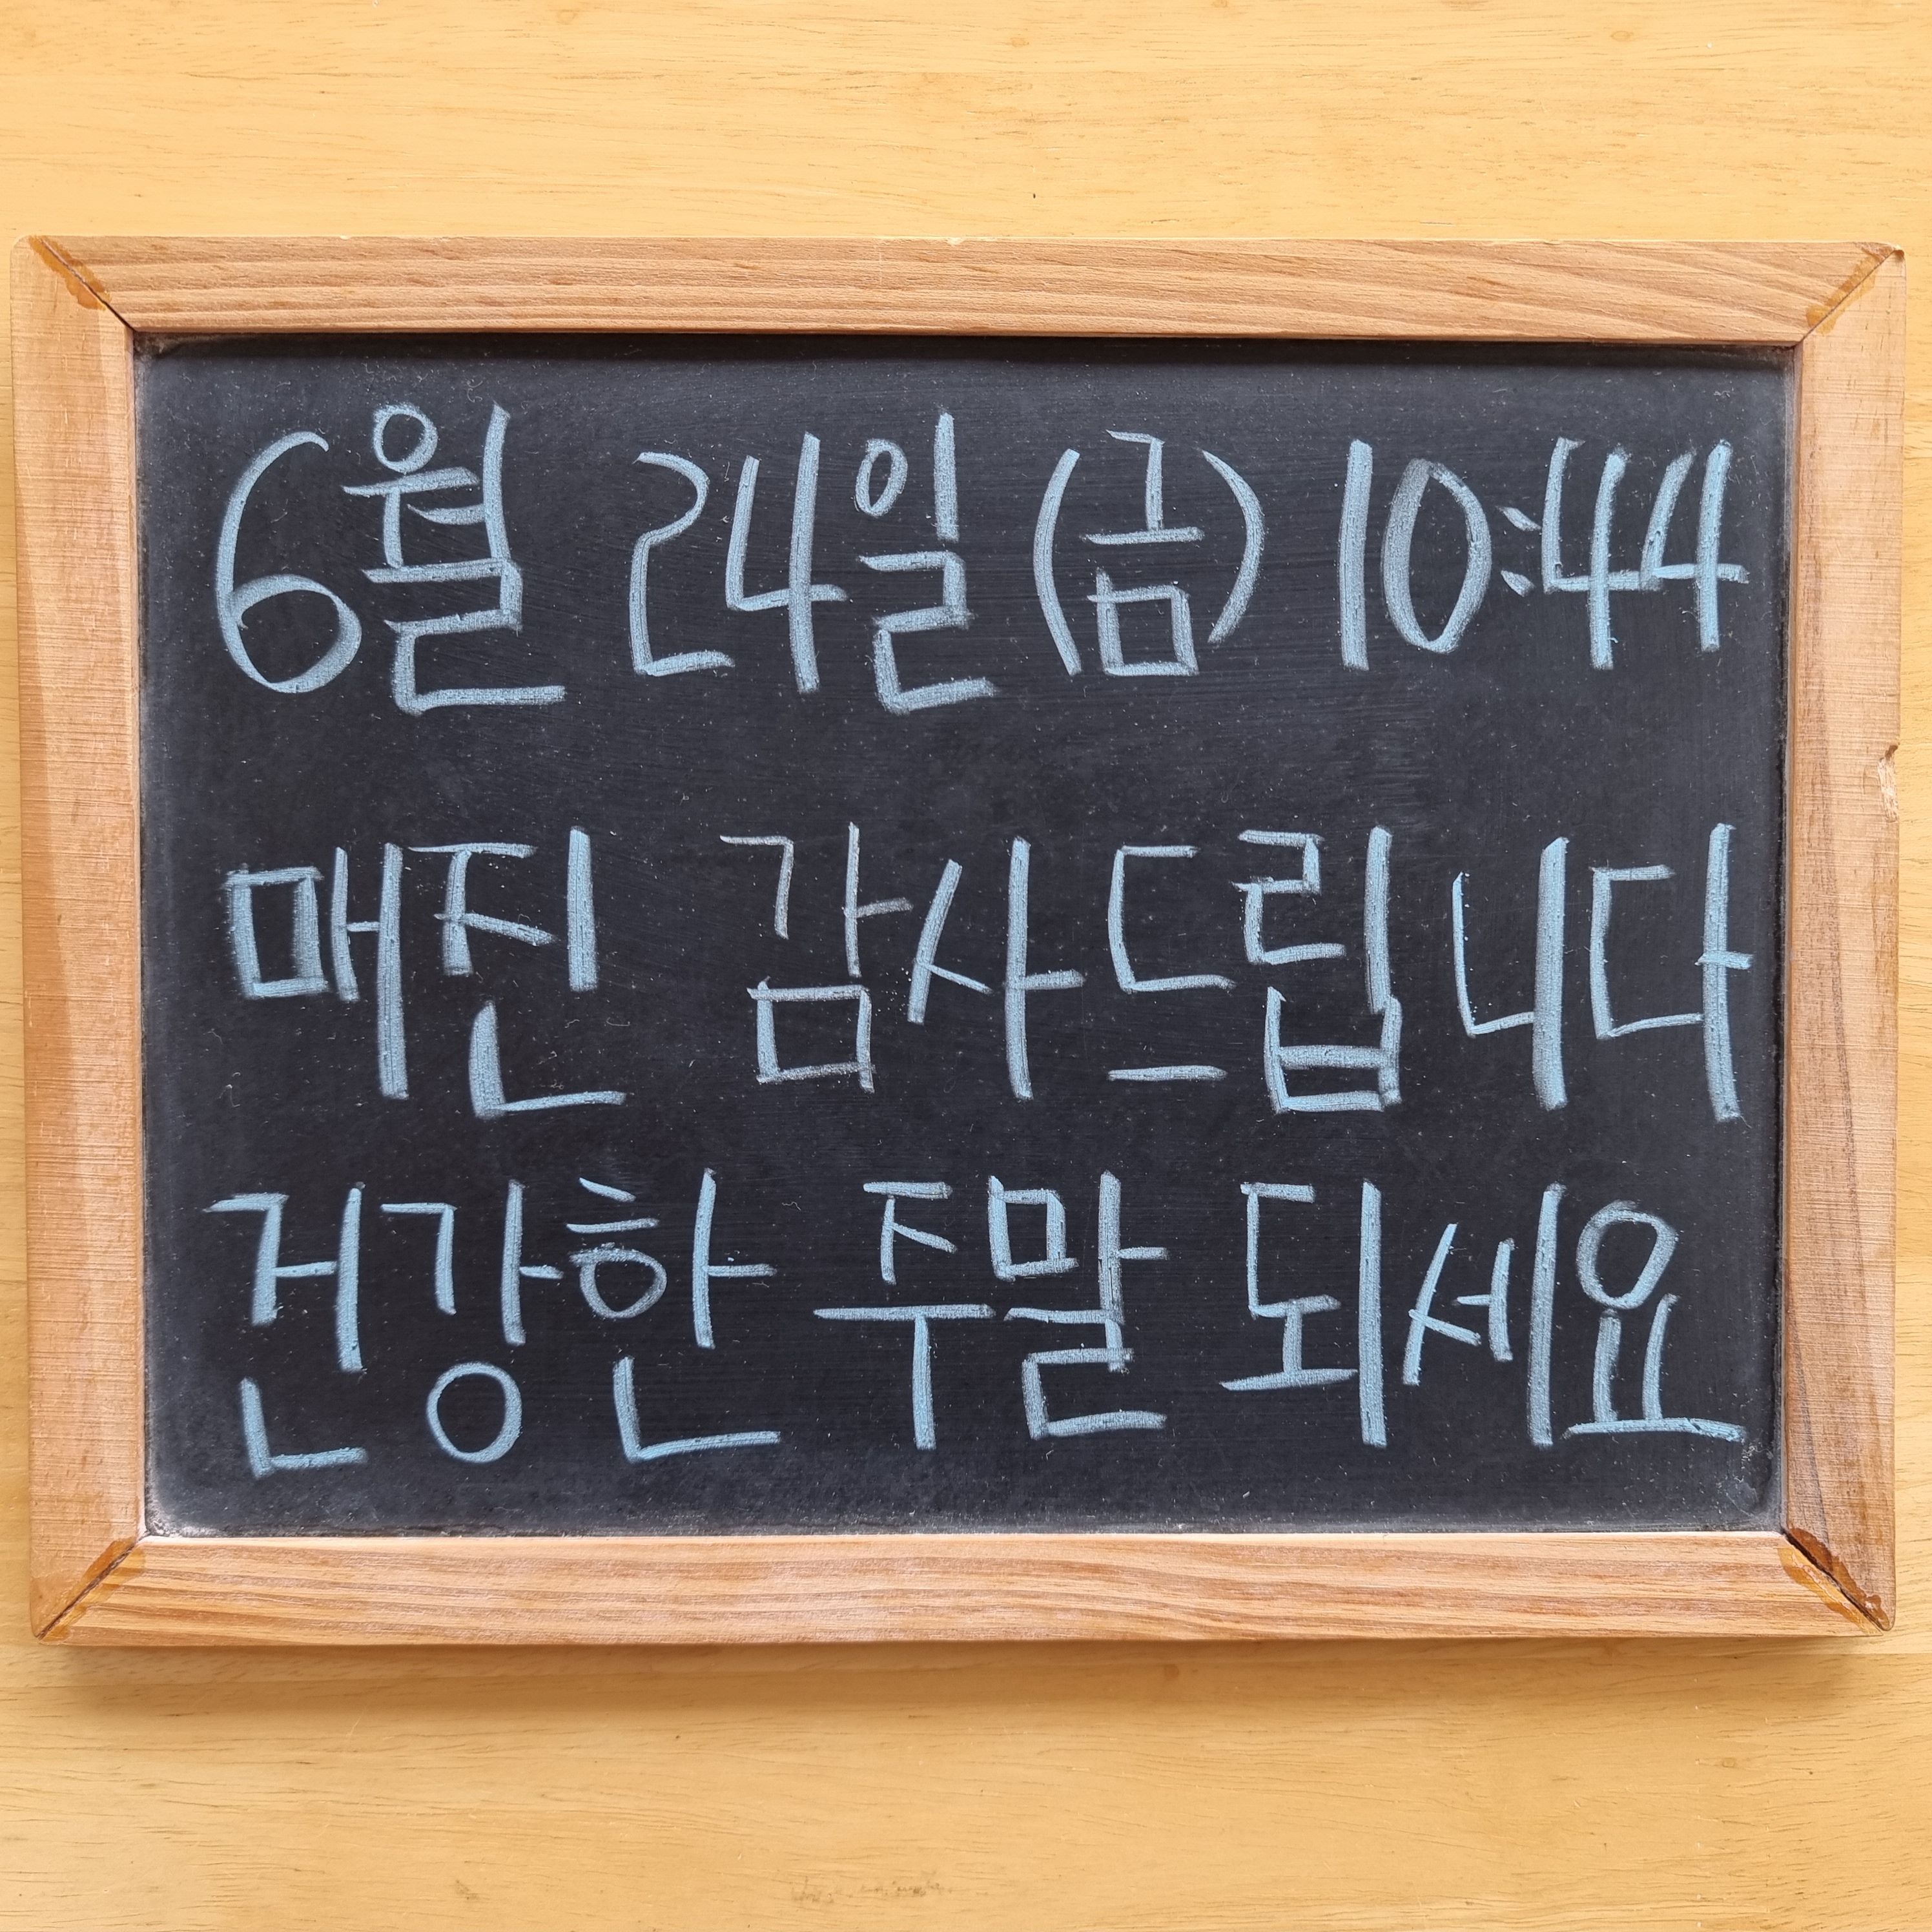 6월 24일(금) 10:44
매진 감사드립니다
건강한 주말 되세요